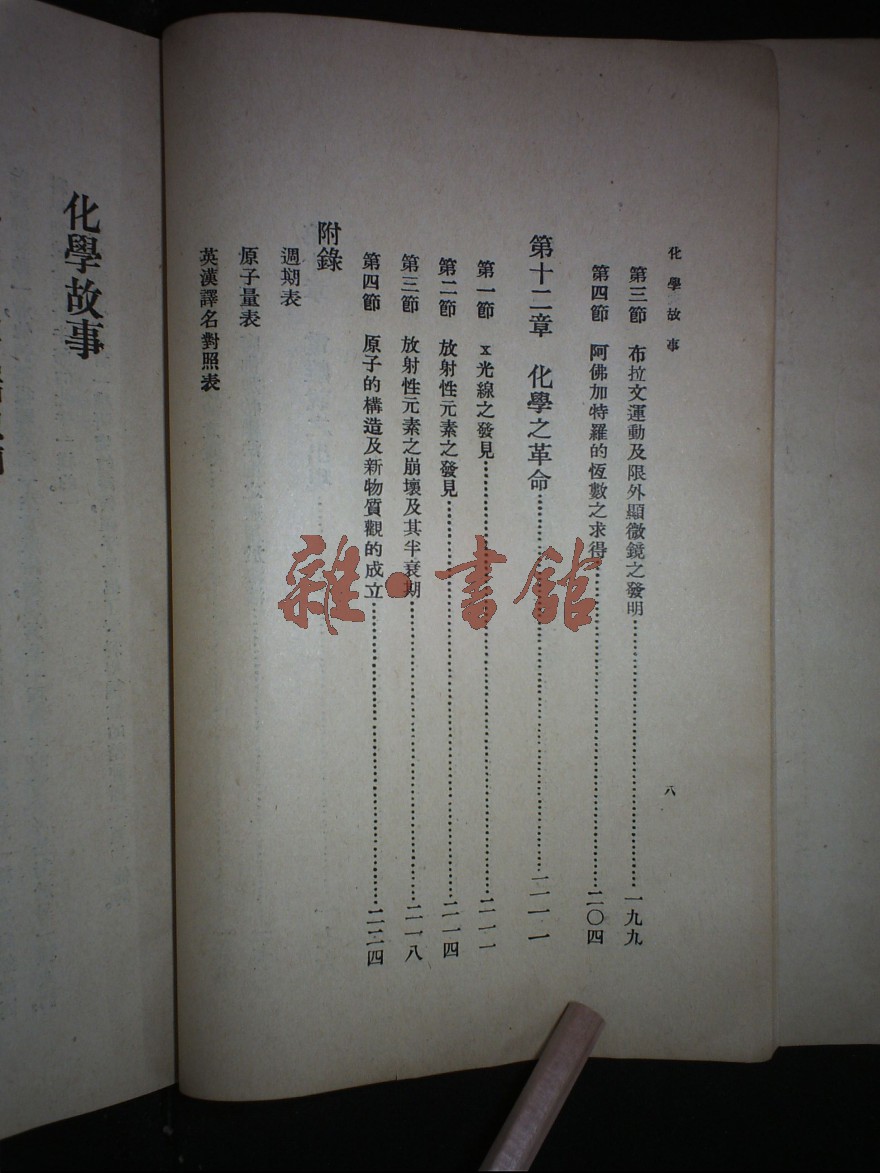 化學故事
八
第三節 布拉文運動及限外顯微鏡之發明…………一九九
第四節 阿佛加特羅的恆數之求得…………二〇四
第十二章 化學之革命…………二一一
第一節 x光線之發見…………二一一
第二節 放射性元素之發見…………二一四
第三節 放射性元素之崩壞及其半衰期…………二一八
第四節 原子的構造及新物質觀的成立…………二二四
附錄
週期表
原子量表
英漢譯名對照表
化學故事
雜·書館